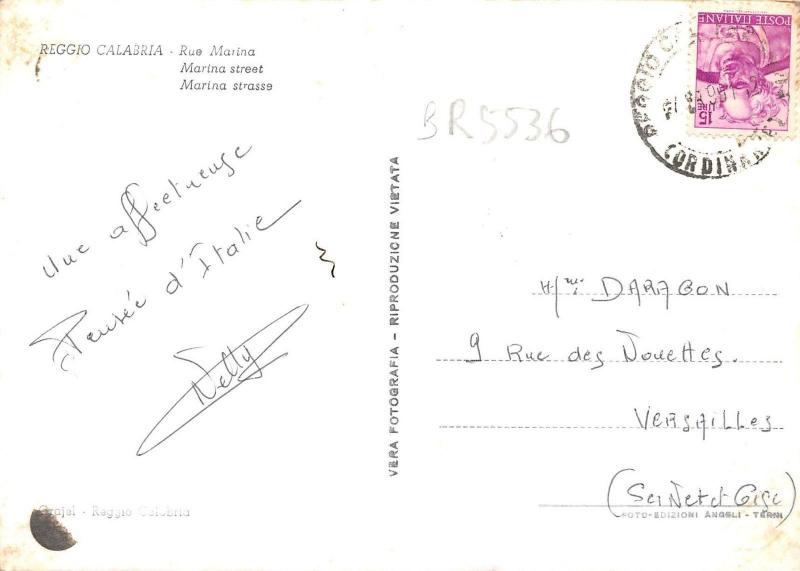 REGGIO CALABRIA - Rue Marina
Marina street
Marina strasse
BR5536
POSTE ITALIANE
15 LIRE
REGGIO
(ORDINARIE
Une affectueuse
Pensée d'Italie
Nelly
VERA FOTOGRAFIA - RIPRODUZIONE VIETATA
DARAGON
9 Rue des Nouettes.
VERSAILLES
(Sei Net et Oise
Grajel - Reggio Calabria
FOTO-EDIZIONI ANGELI - TERNI